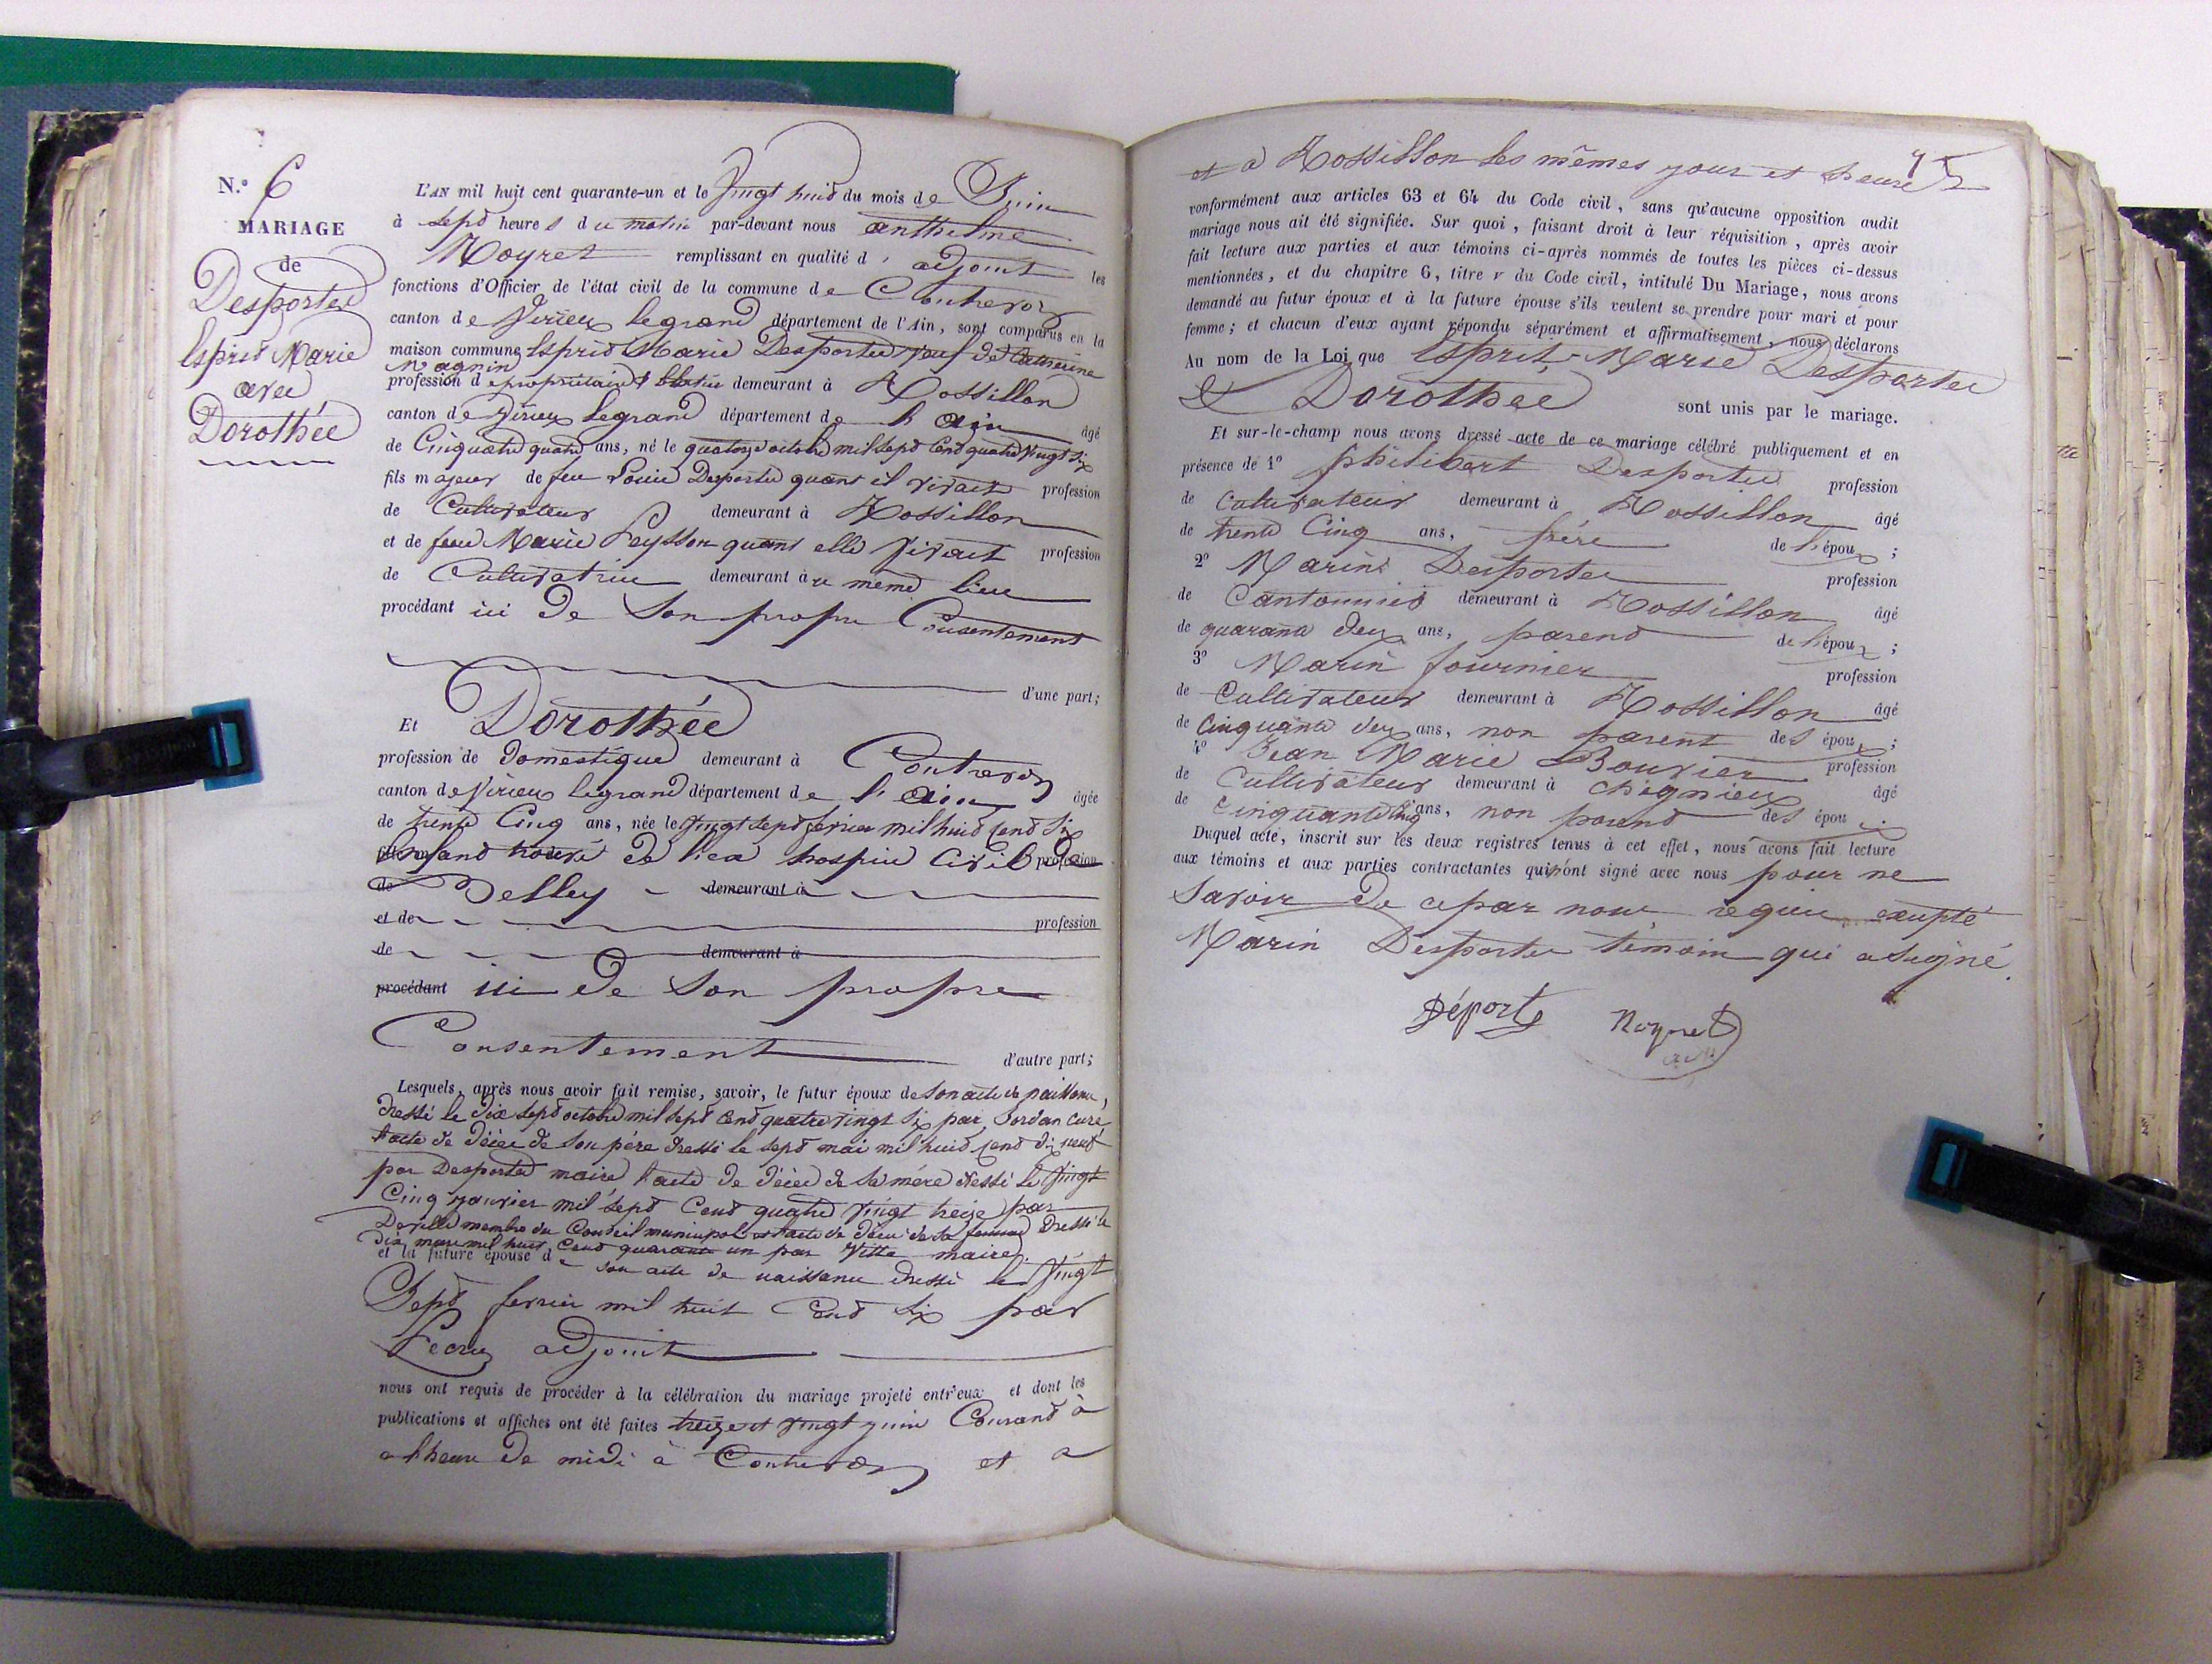 N.º 6
MARIAGE
de
Desportes
Esprid Marie
avec
Dorothée
L'AN mil huit cent quarante-un et le vingt huid du mois de Juin
à sepd heures du matin par-devant nous anthelme
Moyret remplissant en qualité d'adjoint les
fonctions d'Officier de l'état civil de la commune de Contrevoz
canton de Virieux legrand département de l'Ain, sont comparus en la
maison commune Esprid Marie Desportes veuf de Catherine
Magnin
profession de propriétaire demeurant à Rossillon
canton de Virieux legrand département de l'ain âgé
de Cinquante quatre ans, né le quatorze octobre mil sepd Cend quatre vingt six
fils majeur de feu Louis Desportes quant il vivait profession
de Cultivateur demeurant à Rossillon
et de feue Marie Peysson quant elle vivait profession
de Cultivatrice demeurant au meme lieu
procédant ici de Son propre Consentement
d'une part;
Et Dorothée
profession de Domestique demeurant à Contrevoz
canton de Virieux legrand département de l'ain âgée
de trente Cinq ans, née le vingt sepd fevrier mil huid cend Six
enfand trouvé de l'hospice Civil de profession
de Belley demeurant à
et de profession
de demeurant à
procédant ici de Son propre
Consentement d'autre part;
Lesquels, après nous avoir fait remise, savoir, le futur époux de Son acte de naissance,
dressé le dix sepd octobre mil sepd Cend quatre vingt Six par Jordan Curé
l'acte de décès de Son père dressé le sepd mai mil huid cend dix neuf
par Desportes maire l'acte de décès de Sa mère dressé le vingt
Cinq janvier mil sepd Cend quatre vingt treize par
Deville membre du Conseil municipal et l'acte de décès de Sa femme dressé le
dix mars mil huit Cend quarante un par Vitte maire
et la future épouse de Son acte de naissance dressé le vingt
Sepd fevrier mil huit Cend Six par
adjoint
nous ont requis de procéder à la célébration du mariage projeté entr'eux et dont les
publications et affiches ont été faites treize et vingt juin Courand à
a lheure de midi à Contrevoz et a
75
et a Rossillon les mêmes jour et heure
conformément aux articles 63 et 64 du Code civil, sans qu'aucune opposition audit
mariage nous ait été signifiée. Sur quoi, faisant droit à leur réquisition, après avoir
fait lecture aux parties et aux témoins ci-après nommés de toutes les pièces ci-dessus
mentionnées, et du chapitre 6, titre v du Code civil, intitulé Du Mariage, nous avons
demandé au futur époux et à la future épouse s'ils veulent se prendre pour mari et pour
femme; et chacun d'eux ayant répondu séparément et affirmativement, nous déclarons
Au nom de la Loi que Esprit-Marie Desportes
& Dorothée sont unis par le mariage.
Et sur-le-champ nous avons dressé acte de ce mariage célébré publiquement et en
présence de 1º philibert Desportes profession
de Cultivateur demeurant à Rossillon âgé
de trente Cinq ans, frére de l'époux;
2º Marin Desportes profession
de Cantonnier demeurant à Rossillon âgé
de quarante deux ans, parend de l'époux;
3º Marin fournier profession
de Cultivateur demeurant à Rossillon âgé
de Cinquante deux ans, non parent des époux;
4º Jean Marie Bouvier profession
de Cultivateur demeurant à Chegnieux âgé
de Cinquante Cinq ans, non parend des époux.
Duquel acte, inscrit sur les deux registres tenus à cet effet, nous avons fait lecture
aux témoins et aux parties contractantes qui n'ont signé avec nous pour ne
Savoir de ce par nous requis excepté
Marin Desportes témoin qui a signé.
Déporte Moyret